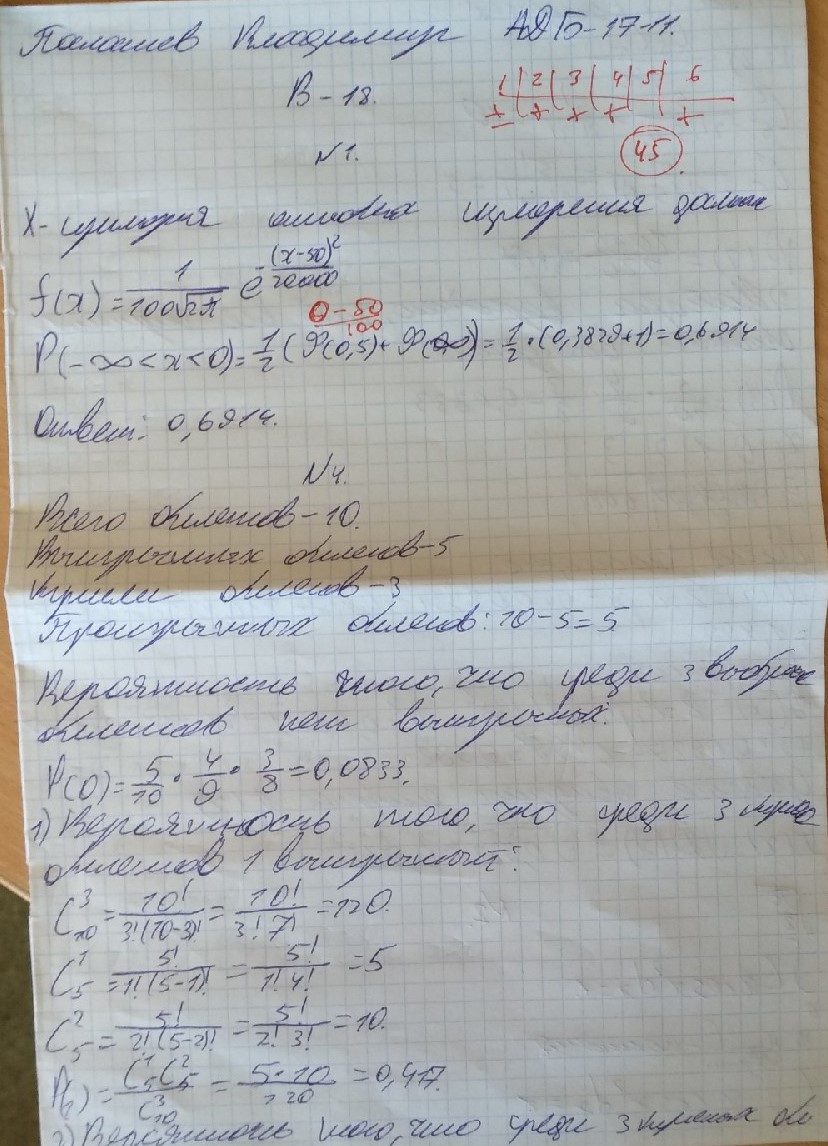 Палашев Владимир АДБ-17-11.
В-18.
1 | 2 | 3 | 4 | 5 | 6
± + + + +
45
N1.
X- ошибки измерения дальн
f(x)=1/(100√2π) e^-(x-50)²/20000
0-50/100
P(-∞<x<0)=1/2(Φ(0,5)+Φ(∞))=1/2·(0,3829+1)=0,6914
Ответ: 0,6914.
N4.
Всего билетов-10.
Выигрышных билетов-5
Купили билетов-3
Проигрышных билетов: 10-5=5.
Вероятность того, что среди 3 выбран
билетов нет выигрышных.
P(0)=5/10·4/9·3/8=0,0833.
1) Вероятность того, что среди 3 купл
билетов 1 выигрышный:
C³₁₀=10!/3!(10-3)!=10!/3!7!=120.
C¹₅=5!/1!(5-1)!=5!/1!4!=5
C²₅=5!/2!(5-2)!=5!/2!3!=10.
=C¹₅C²₅/C³₁₀=5·10/120=0,417.
2) Вероятность того, что среди 3 купленых би